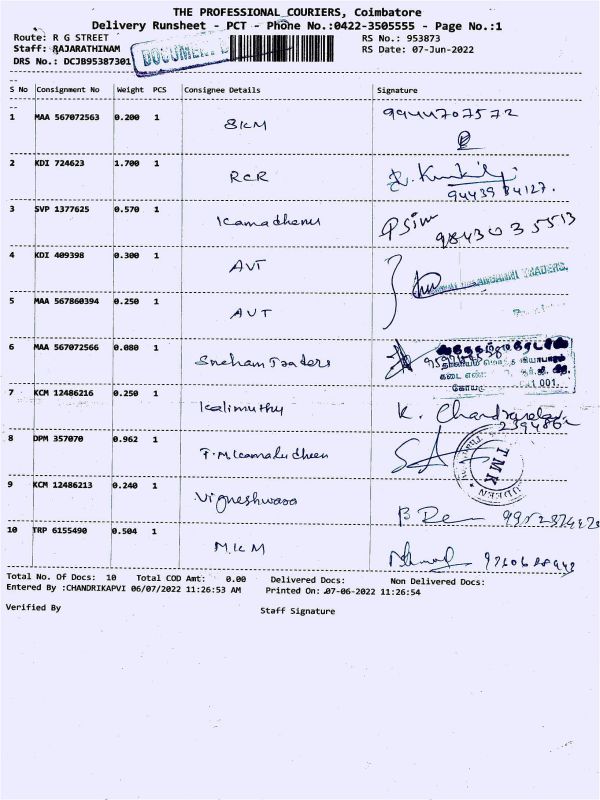 THE PROFESSIONAL COURIERS, Coimbatore
Delivery Runsheet - PCT - Phone No.:0422-3505555 - Page No.:1
Route: R G STREET RS No.: 953873
Staff: RAJARATHINAM DOCUMENT RS Date: 07-Jun-2022
DRS No.: DCJB95387301
S No Consignment No Weight PCS Consignee Details Signature
1 MAA 567072563 0.200 1 SKM 9944707572
2 KDI 724623 1.700 1 RCR
3 SVP 1377625 0.570 1 Kamadhenu 9843035513
4 KDI 409398 0.300 1 AVT TRADERS.
5 MAA 567860394 0.250 1 AVT
6 MAA 567072566 0.080 1 Sneham Traders
கடை எண்:
7 KCM 12486216 0.250 1 Kalimuthy K.
8 DPM 357070 0.962 1 T.M.Kamaludheen TMK
9 KCM 12486213 0.240 1 Vigneshwara
10 TRP 6155490 0.504 1 M.K.M
Total No. Of Docs: 10 Total COD Amt: 0.00 Delivered Docs: Non Delivered Docs:
Entered By :CHANDRIKAPVI 06/07/2022 11:26:53 AM Printed On: 07-06-2022 11:26:54
Verified By Staff Signature